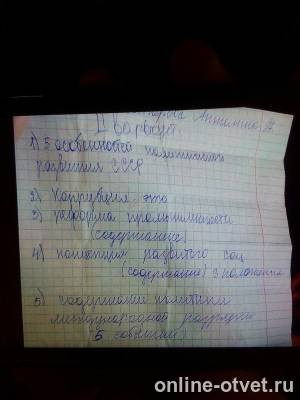 II вариант.
1) 5 особенностей политического
развития СССР
2) Коррупция - это
3) реформа промышленности
(содержание)
4) концепция развитого соц
(содержание) 3 положения
5) содержание политики
международной разрядки
(5 событий)
online-otvet.ru